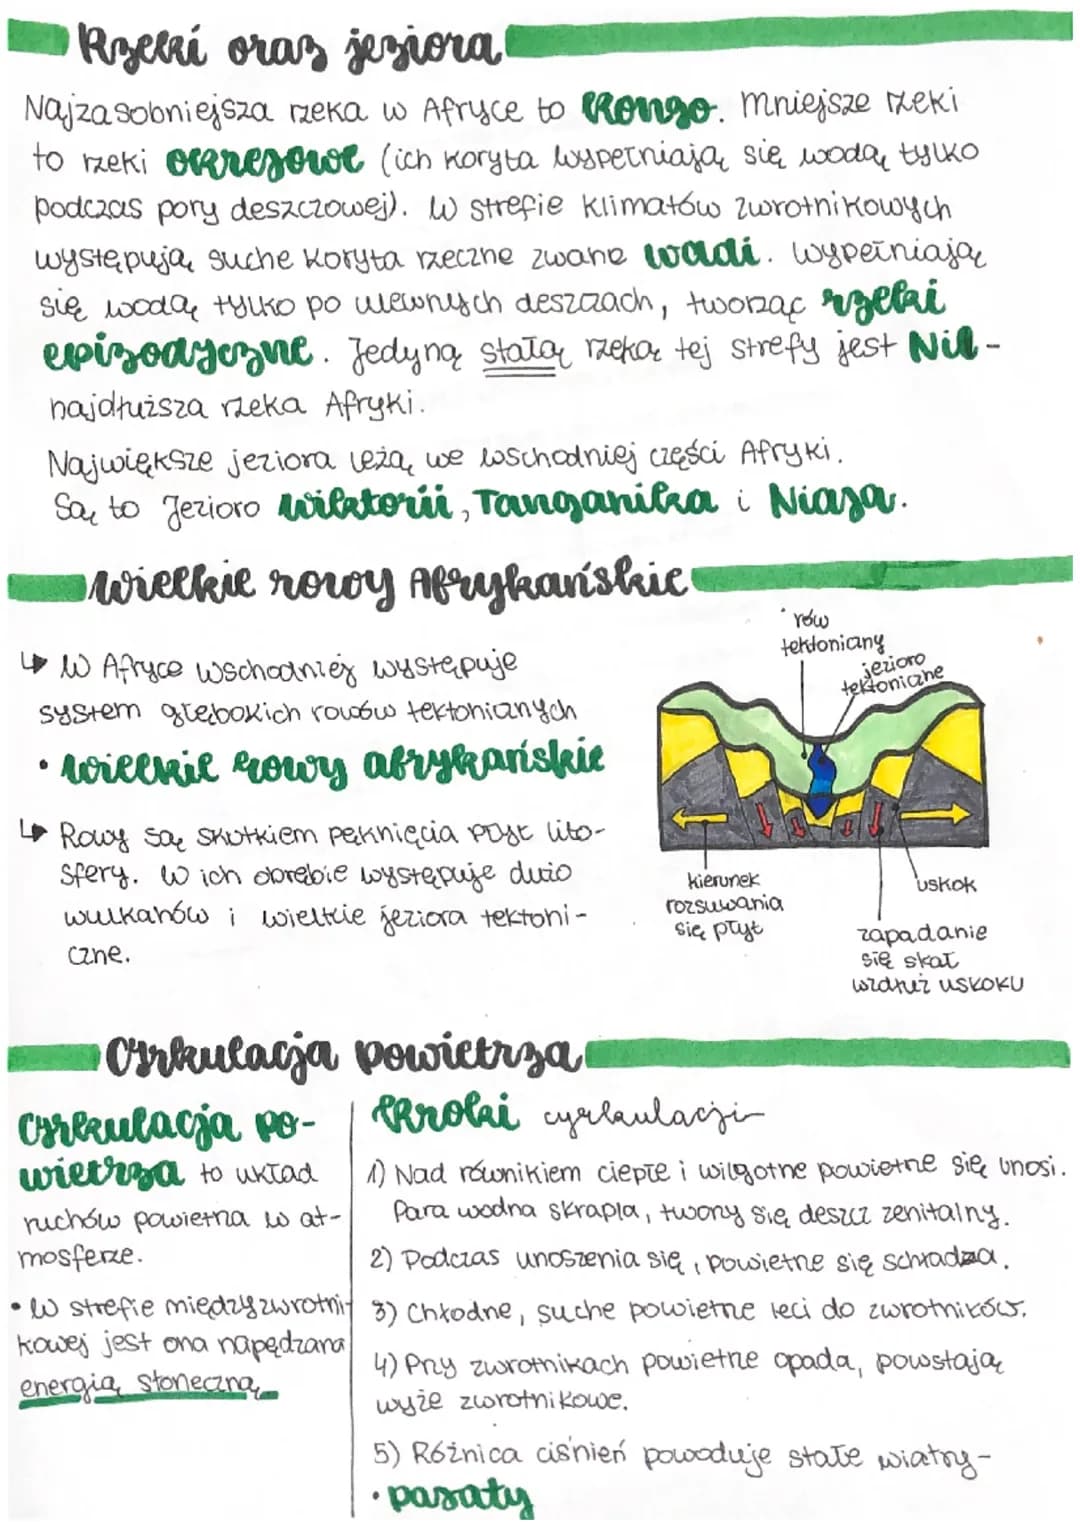 Rzeki oraz jeziora
Najzasobniejsza rzeka w Afryce to Kongo. Mniejsze rzeki
to rzeki okresowe (ich koryta wypełniają się wodą tylko
podczas pory deszczowej). W strefie klimatów zwrotnikowych
występują suche koryta rzeczne zwane wadi. Wypełniają
się wodą tylko po ulewnych deszczach, tworząc rzeki
epizodyczne. Jedyną stałą rzeką tej strefy jest Nil -
najdłuższa rzeka Afryki.
Największe jeziora leżą we wschodniej części Afryki.
Są to Jezioro Wiktorii, Tanganika i Niasa.
Wielkie rowy Afrykańskie
↳ W Afryce wschodniej występuje
system głębokich rowów tektonicznych
• wielkie rowy afrykańskie
↳ Rowy są skutkiem pęknięcia płyt lito-
sfery. W ich obrębie występuje dużo
wulkanów i wielkie jeziora tektoni-
czne.
rów
tektoniczny
jezioro
tektoniczne
kierunek
rozsuwania
się płyt
uskok
zapadanie
się skał
wzdłuż uskoku
Cyrkulacja powietrza
Cyrkulacja po-
wietrza to układ
ruchów powietrza w at-
mosferze.
• W strefie międzyzwrotni-
kowej jest ona napędzana
energią słoneczną
Kroki cyrkulacji
1) Nad równikiem ciepłe i wilgotne powietrze się unosi.
Para wodna skrapla, tworzy się deszcz zenitalny.
2) Podczas unoszenia się, powietrze się schładza.
3) Chłodne, suche powietrze leci do zwrotników.
4) Przy zwrotnikach powietrze opada, powstają
wyże zwrotnikowe.
5) Różnica ciśnień powoduje stałe wiatry-
• pasaty